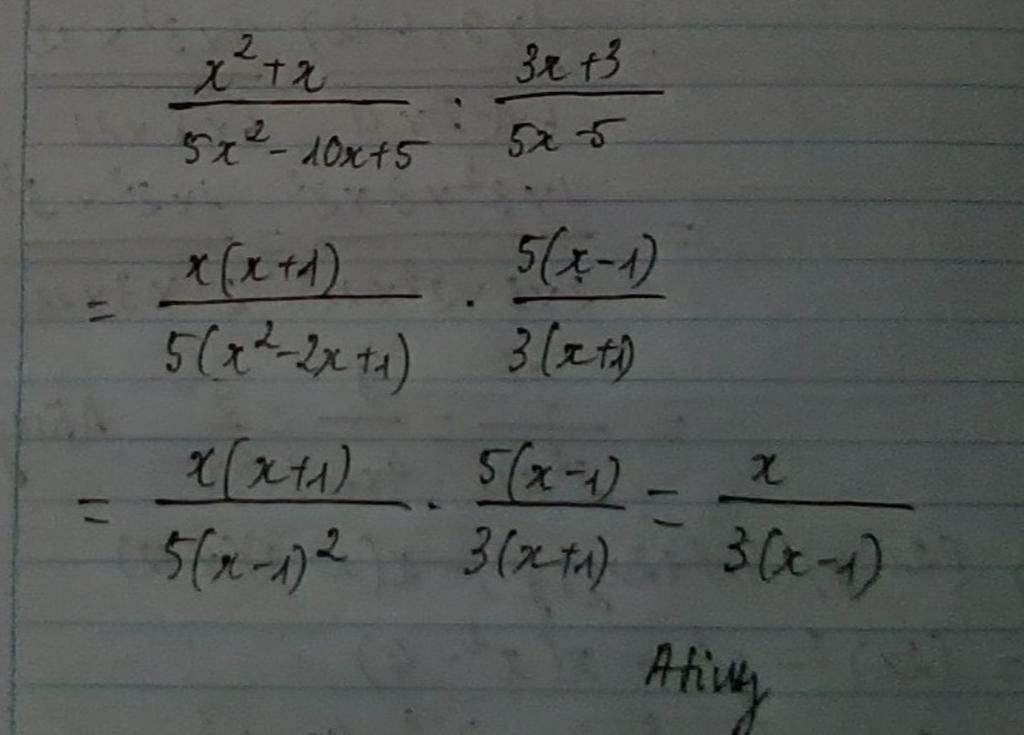 x² + x / 5x² - 10x + 5 : 3x + 3 / 5x - 5
= x(x + 1) / 5(x² - 2x + 1) . 5(x - 1) / 3(x + 1)
= x(x + 1) / 5(x - 1)² . 5(x - 1) / 3(x + 1) = x / 3(x - 1)